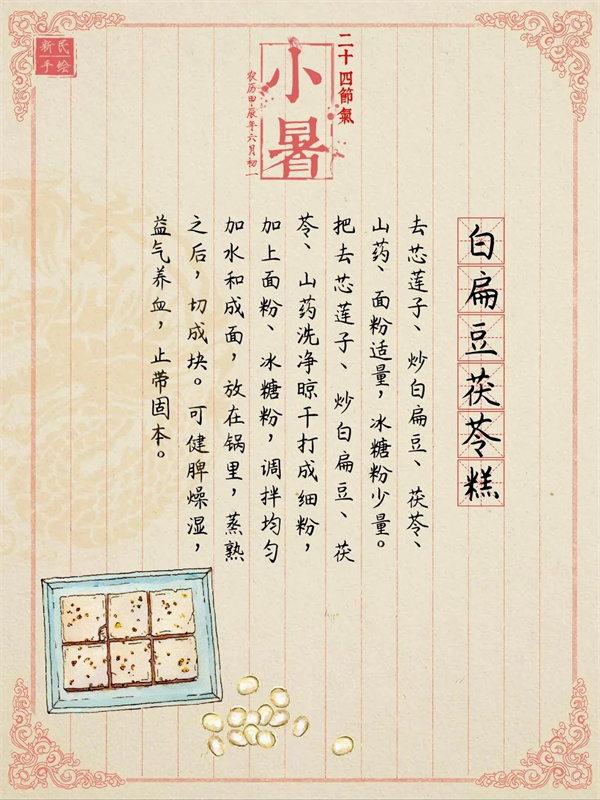 二十四節氣
小暑
农历甲辰年六月初一
新民
手绘
白扁豆茯苓糕
去芯莲子、炒白扁豆、茯苓、
山药、面粉适量，冰糖粉少量。
把去芯莲子、炒白扁豆、茯
苓、山药洗净晾干打成细粉，
加上面粉、冰糖粉，调拌均匀
加水和成面，放在锅里，蒸熟
之后，切成块。可健脾燥湿，
益气养血，止带固本。